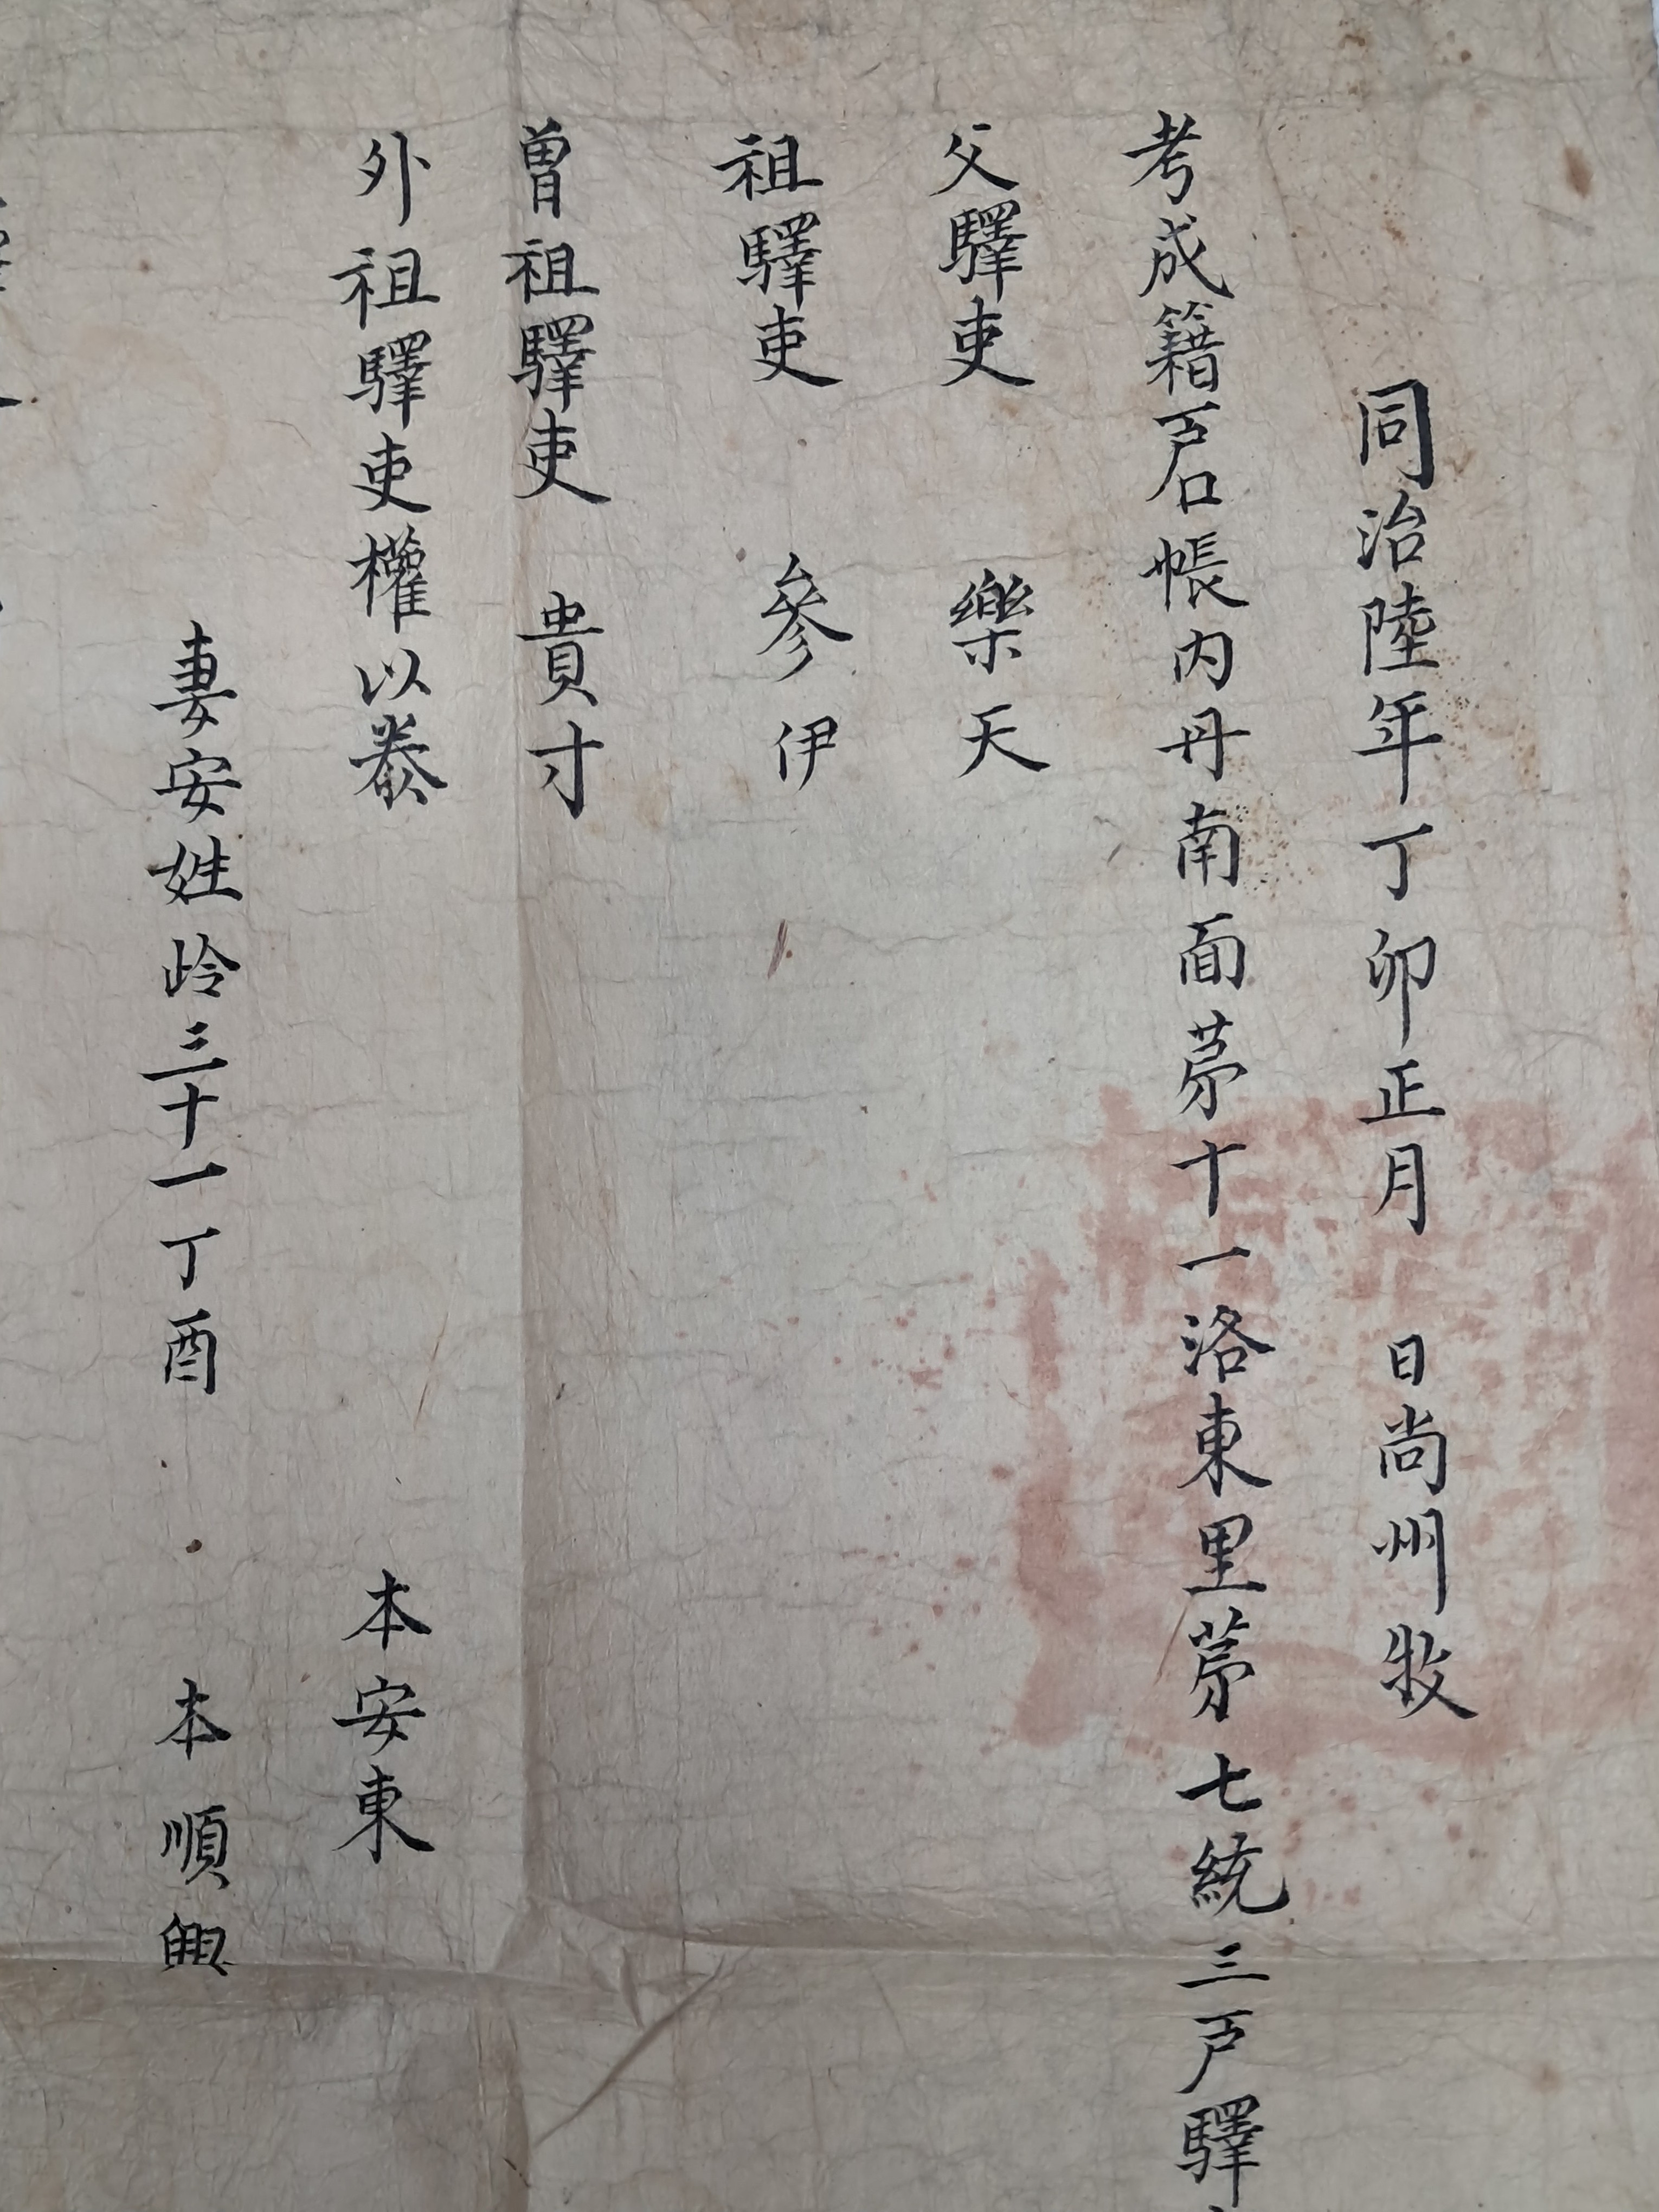 同治陸年丁卯正月 日尚州牧
考成籍戶口帳內丹南面苐十一洛東里苐七統三戶驛
父驛吏 樂天
祖驛吏 參伊
曾祖驛吏 貴才
外祖驛吏權以泰 本安東
妻安姓岭三十一丁酉 本順興